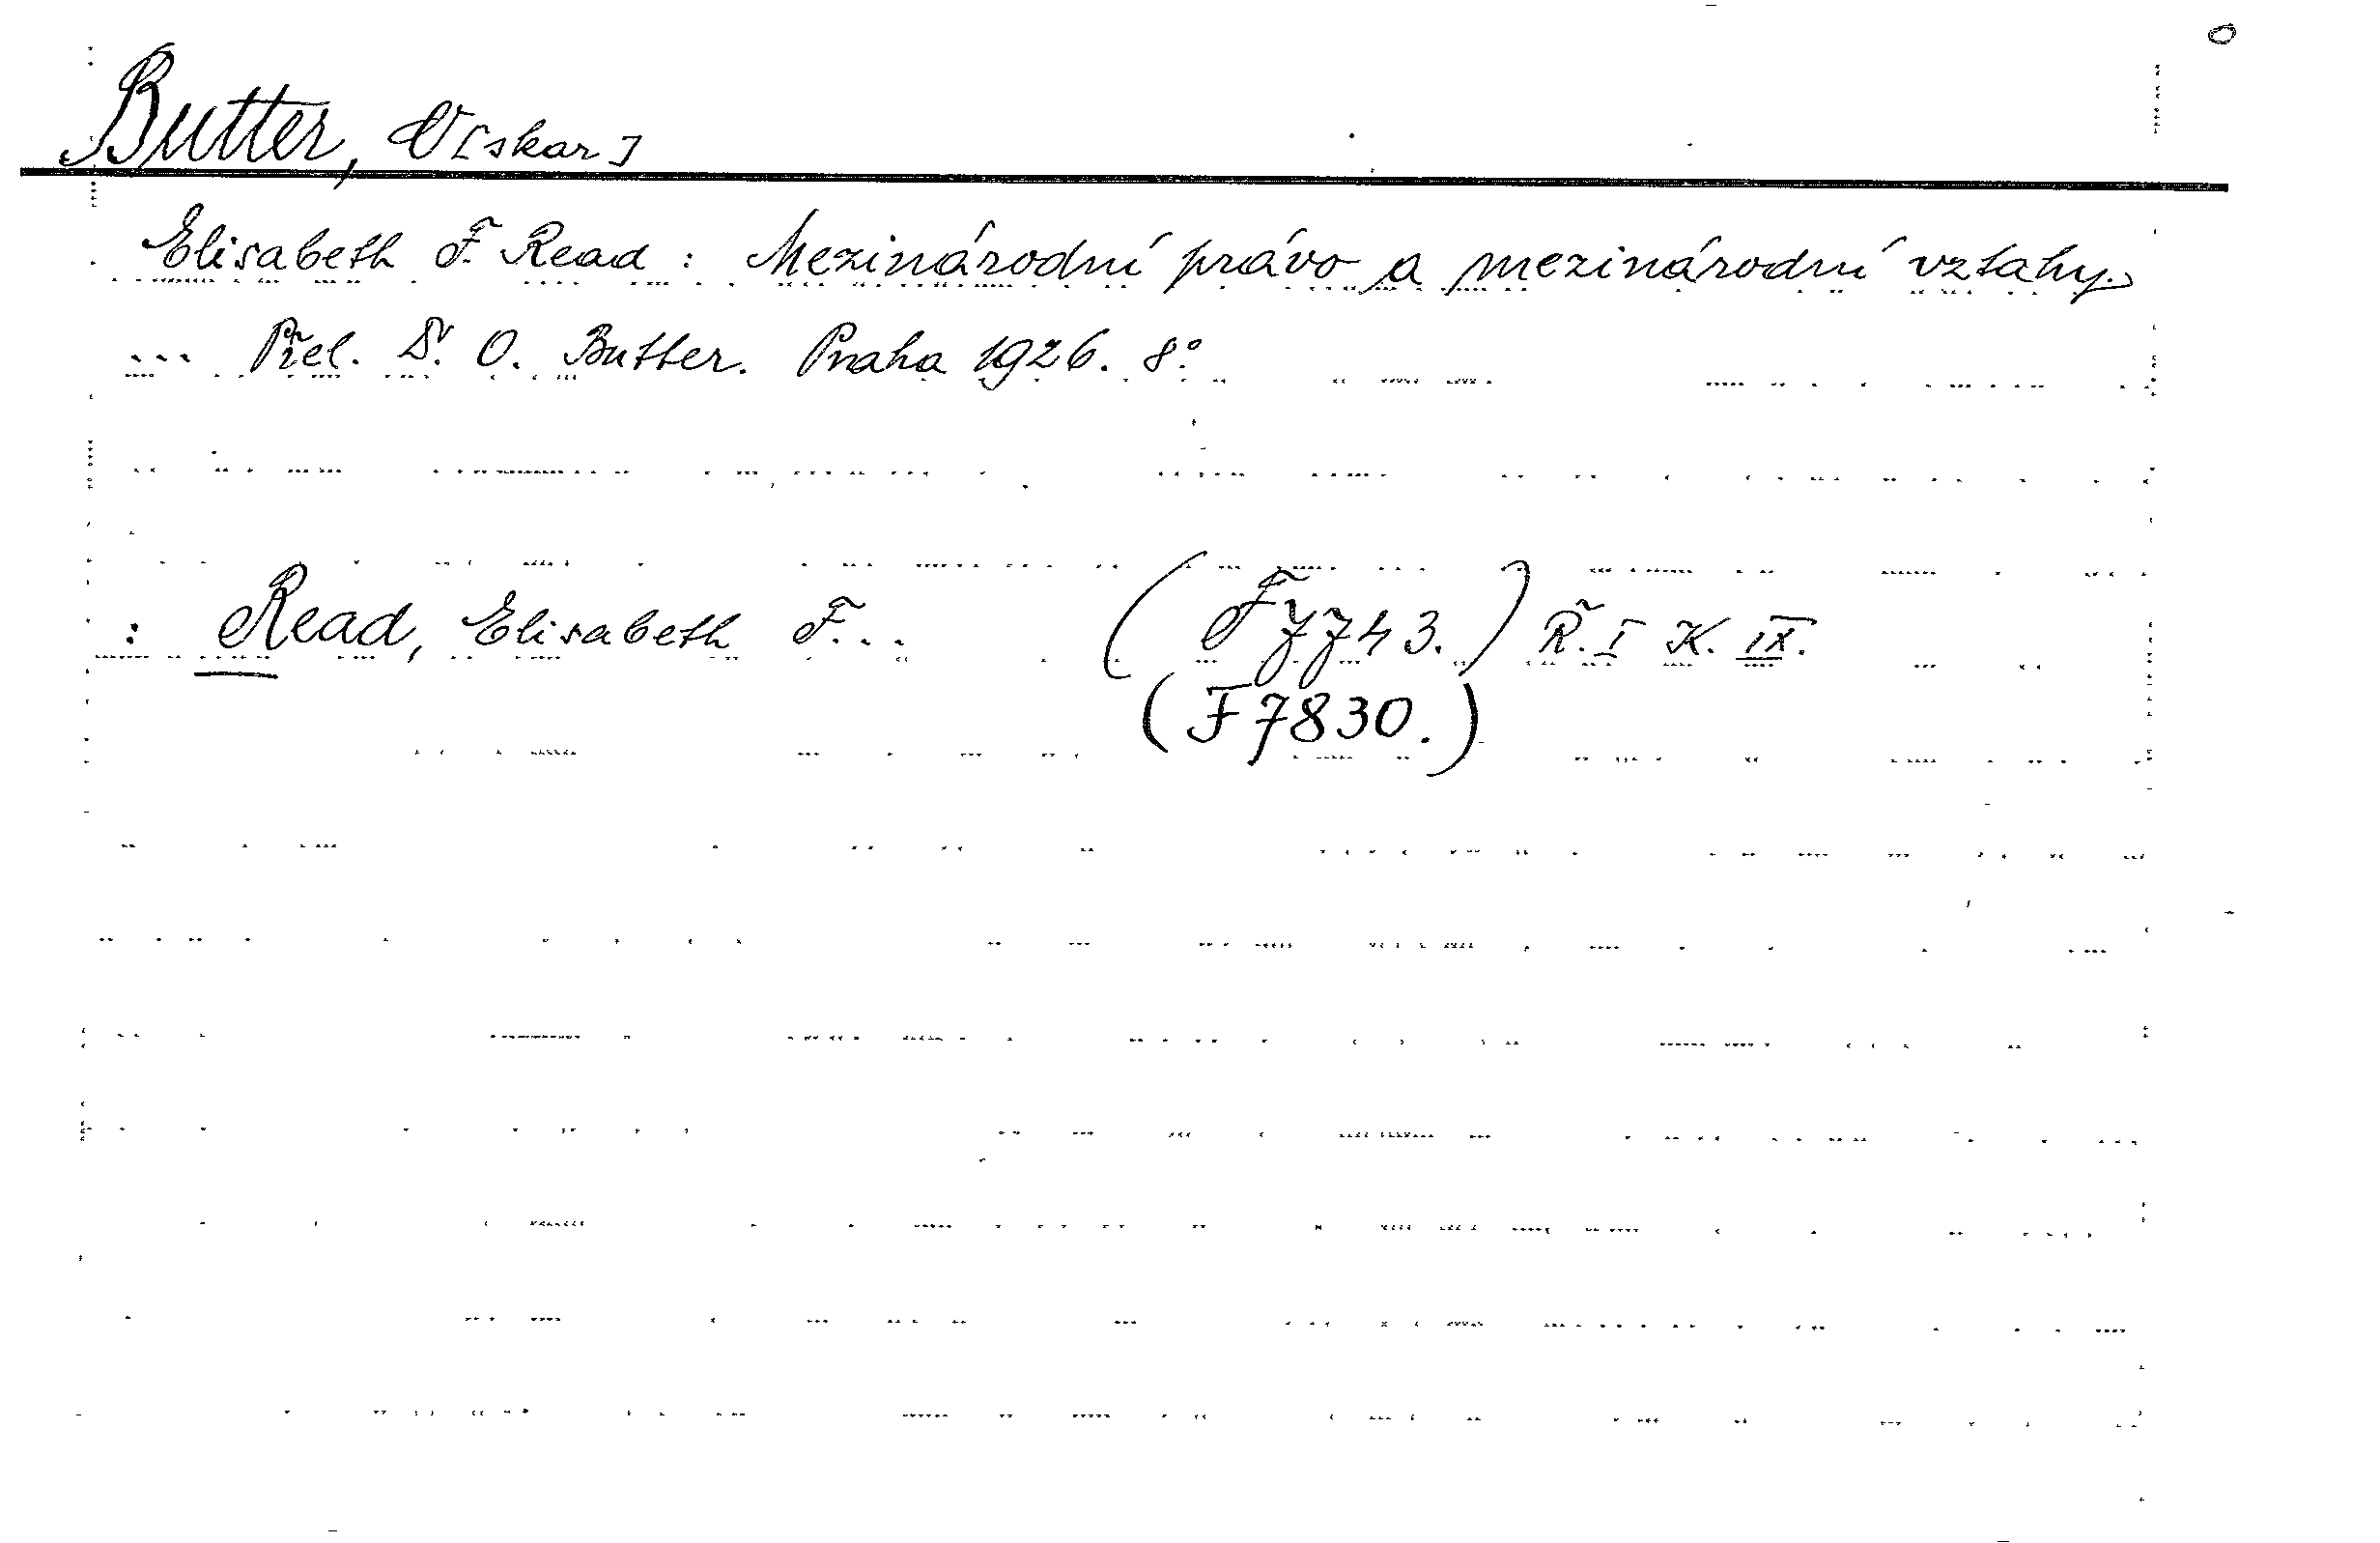 Butter, O[skar]
Elisabeth F. Read : Mezinárodní právo a mezinárodní vztahy.
... Přel. Dr. O. Butter. Praha 1926. 8°
: Read, Elisabeth F... (F 7743.) Ř. I K. IX.
(F 7830.)